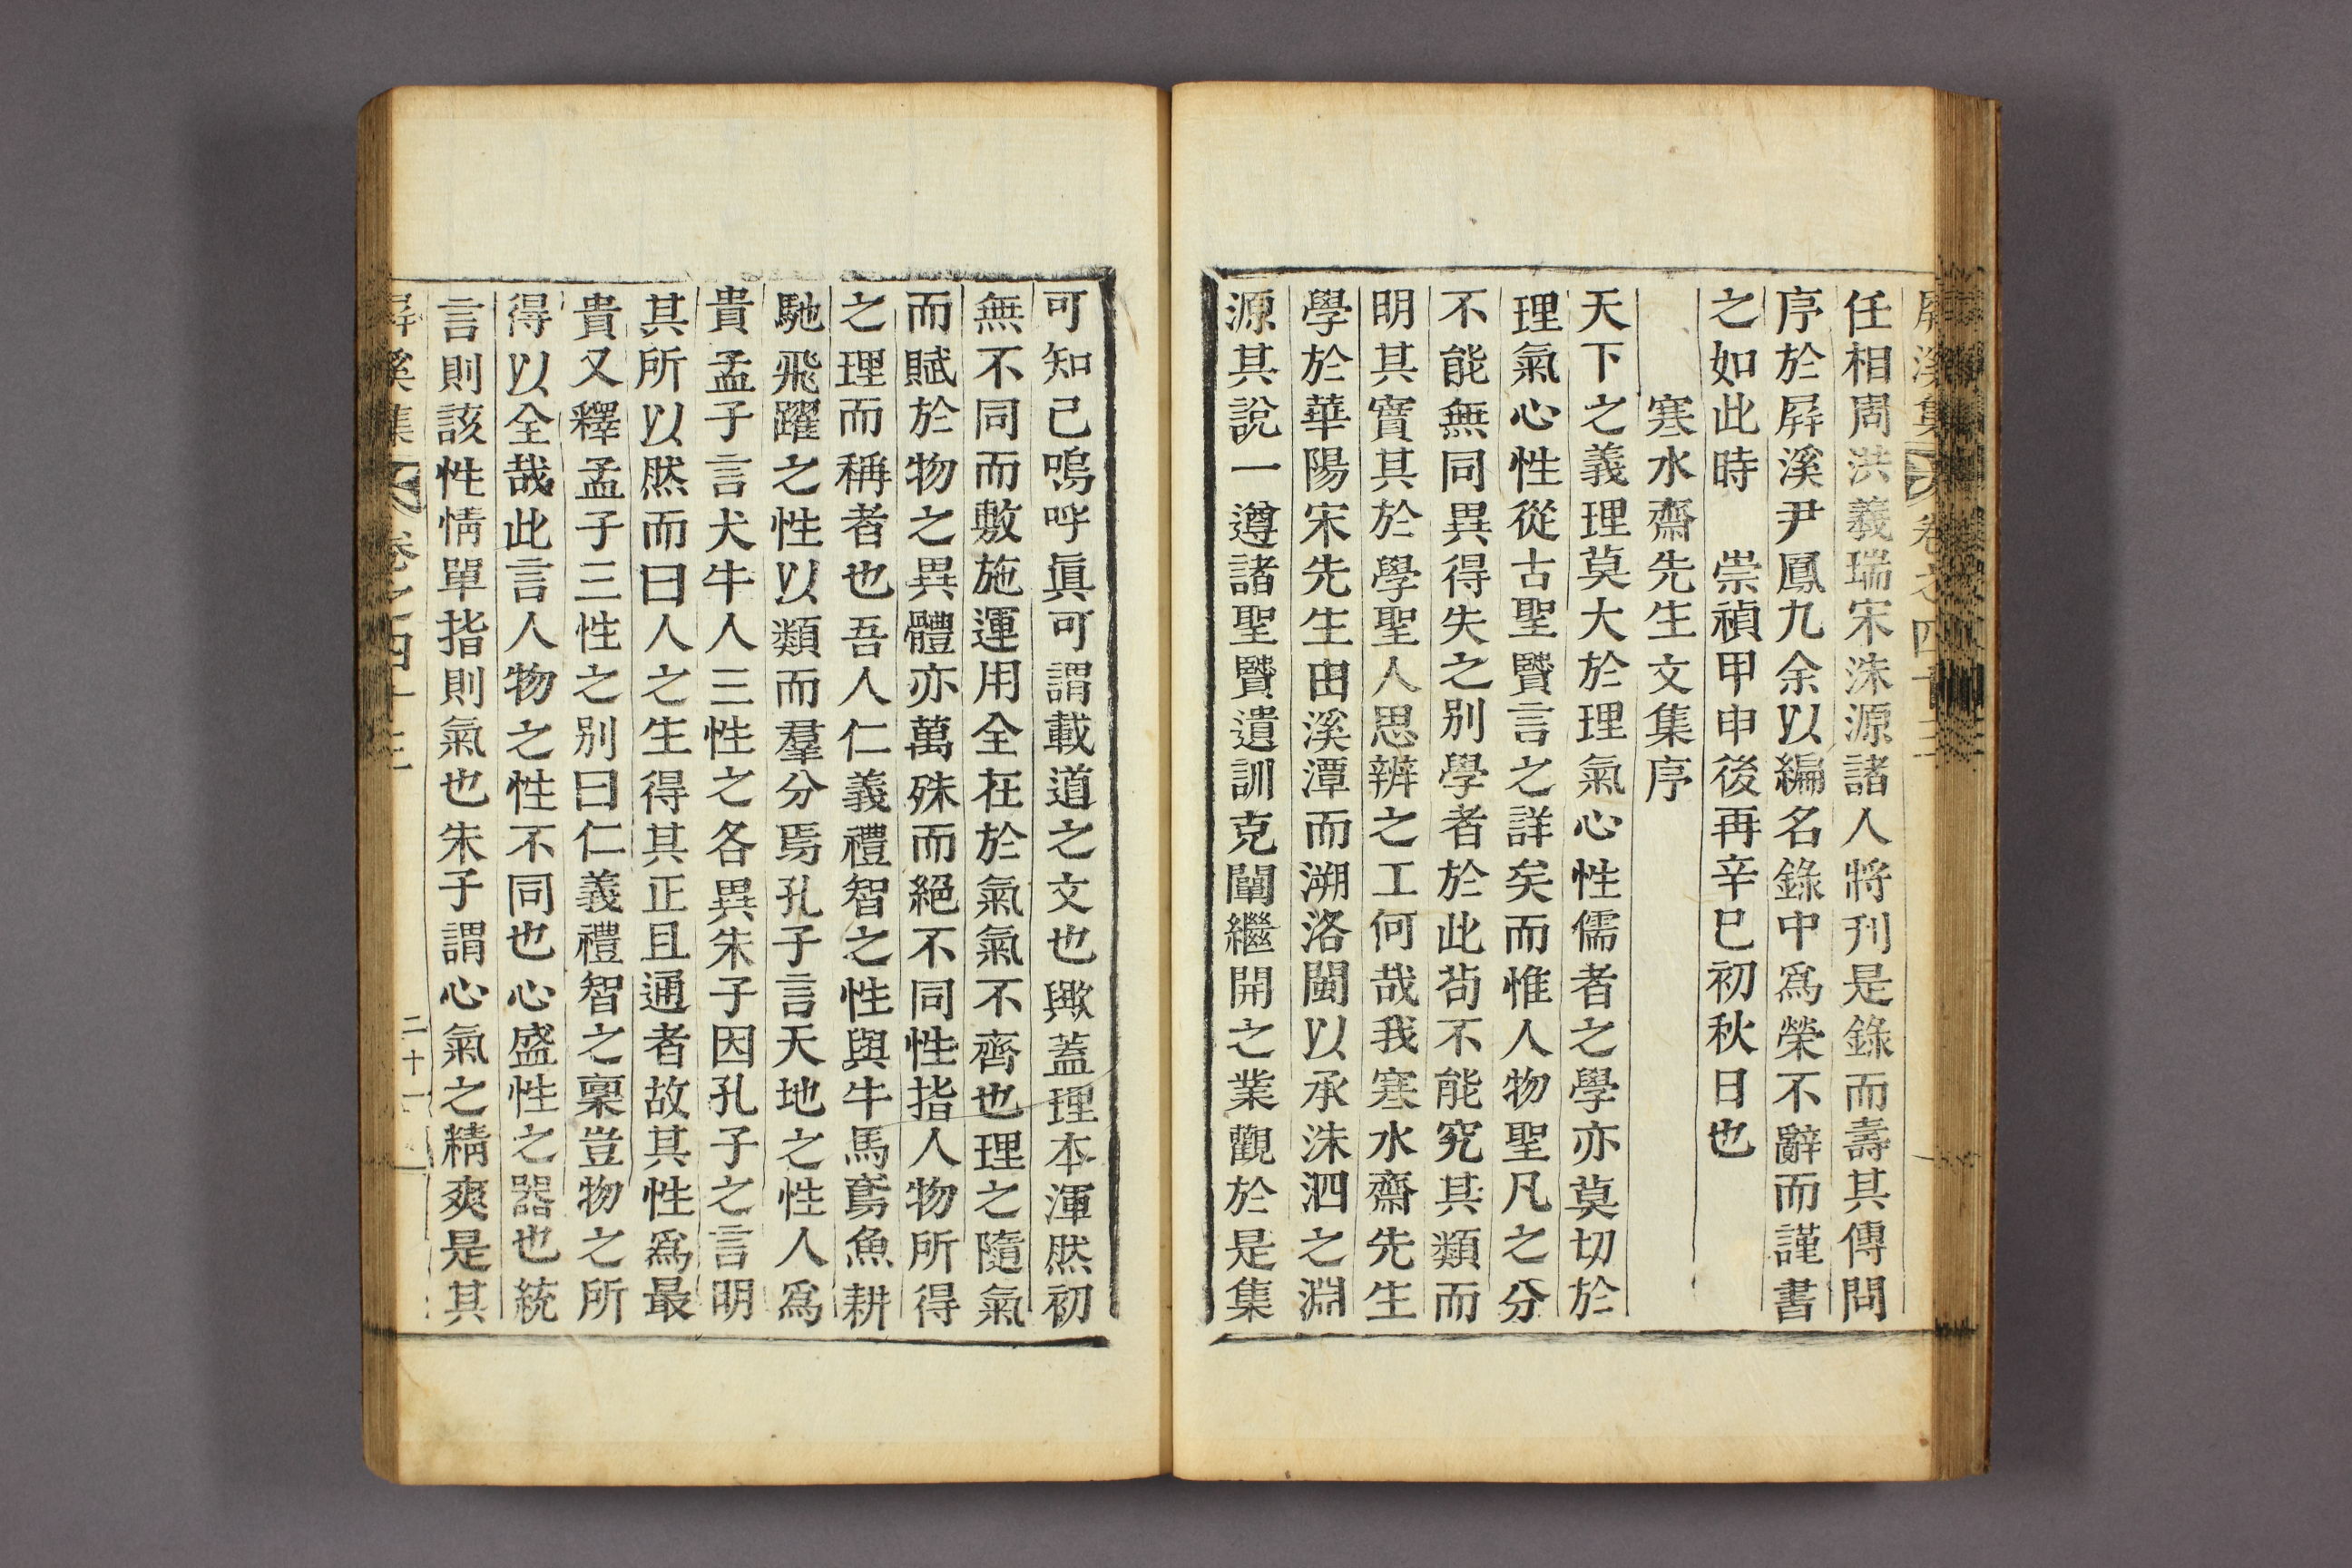 屛溪集 卷之四十三
任相周洪羲瑞宋洙源諸人將刊是錄而壽其傳問
序於屛溪尹鳳九余以編名錄中爲榮不辭而謹書
之如此時 崇禎甲申後再辛巳初秋日也
寒水齋先生文集序
天下之義理莫大於理氣心性儒者之學亦莫切於
理氣心性從古聖賢言之詳矣而惟人物聖凡之分
不能無同異得失之別學者於此苟不能究其類而
明其實其於學聖人思辨之工何哉我寒水齋先生
學於華陽宋先生由溪潭而溯洛閩以承洙泗之淵
源其說一遵諸聖賢遺訓克闡繼開之業觀於是集
可知已嗚呼眞可謂載道之文也歟蓋理本渾然初
無不同而敷施運用全在於氣氣不齊也理之隨氣
而賦於物之異體亦萬殊而絕不同性指人物所得
之理而稱者也吾人仁義禮智之性與牛馬鳶魚耕
馳飛躍之性以類而羣分焉孔子言天地之性人爲
貴孟子言犬牛人三性之各異朱子因孔子之言明
其所以然而曰人之生得其正且通者故其性爲最
貴又釋孟子三性之別曰仁義禮智之稟豈物之所
得以全哉此言人物之性不同也心盛性之器也統
言則該性情單指則氣也朱子謂心氣之精爽是其
屛溪集 卷之四十三 二十一